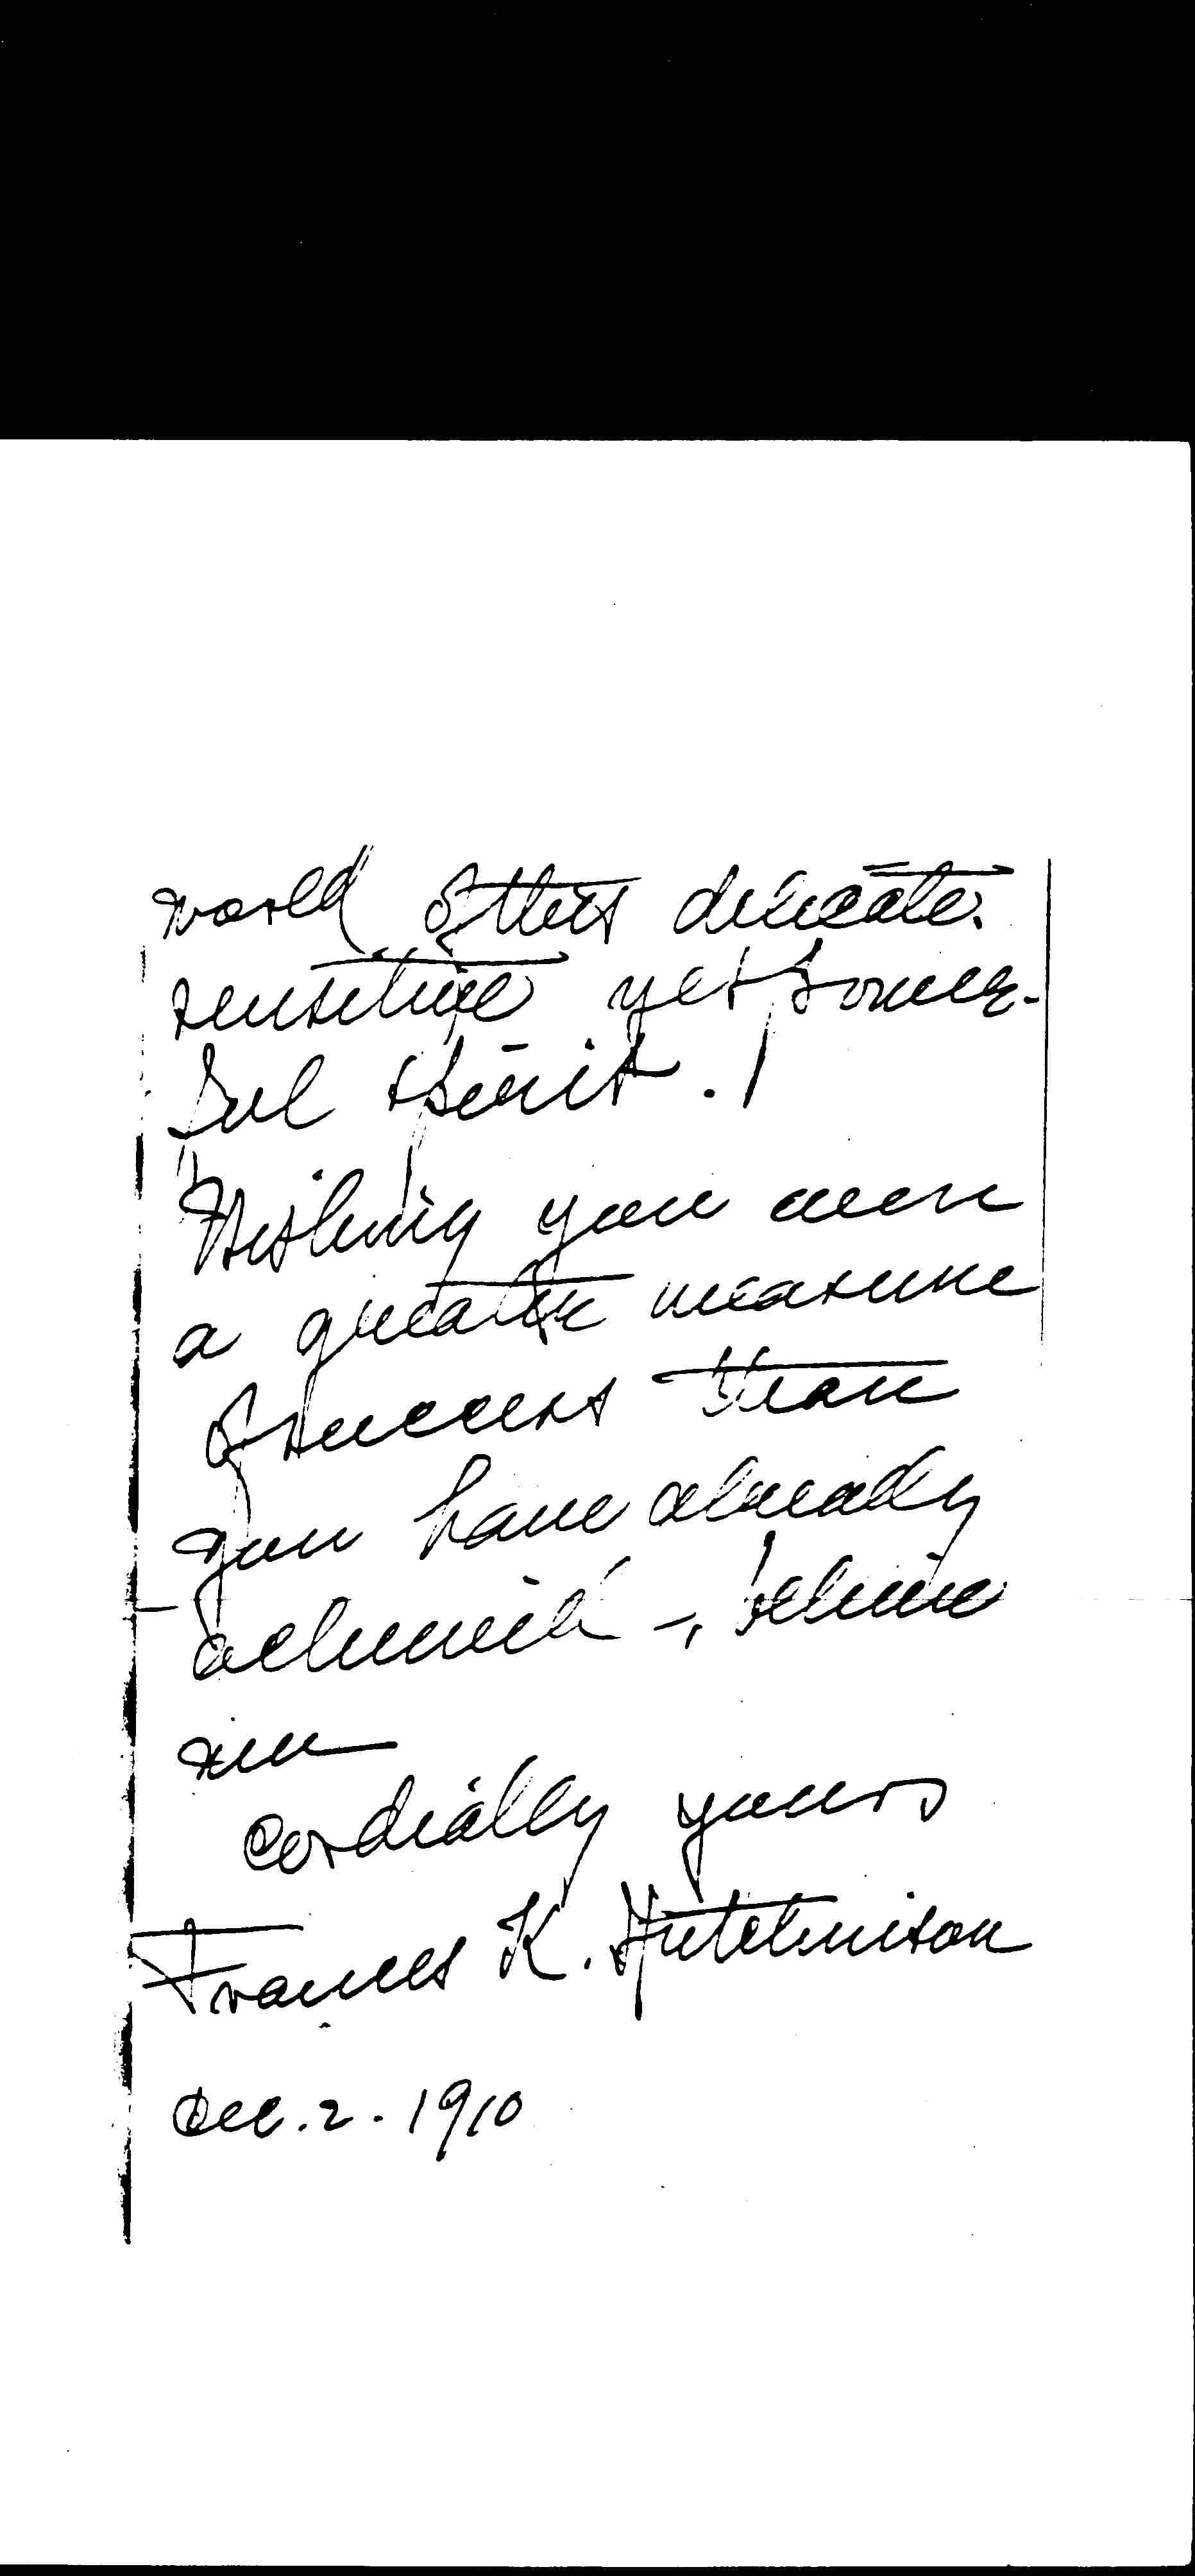 world of this delicate
sensitive yet power-
ful spirit.
Wishing you even
a greater measure
of success than
you have already
achieved -, believe
me
Cordially yours
Frances K. Hutchinson
Dec. 2. 1910